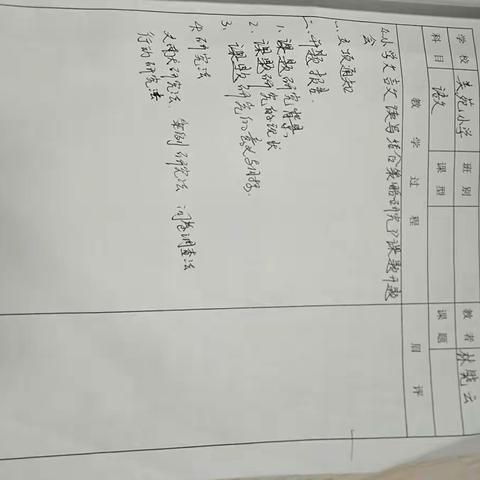 学校 美苑小学 班别 教者 林晓云
科目 语文 课型 课题
教学过程 眉评
《小学文言文读写结合策略研究》课题开题
会
一、立项通知
二、开题报告
1、课题研究背景
2、课题研究的现状
3、课题研究的意义与目标
4、研究法
文献研究法、案例研究法 问卷调查法
行动研究法